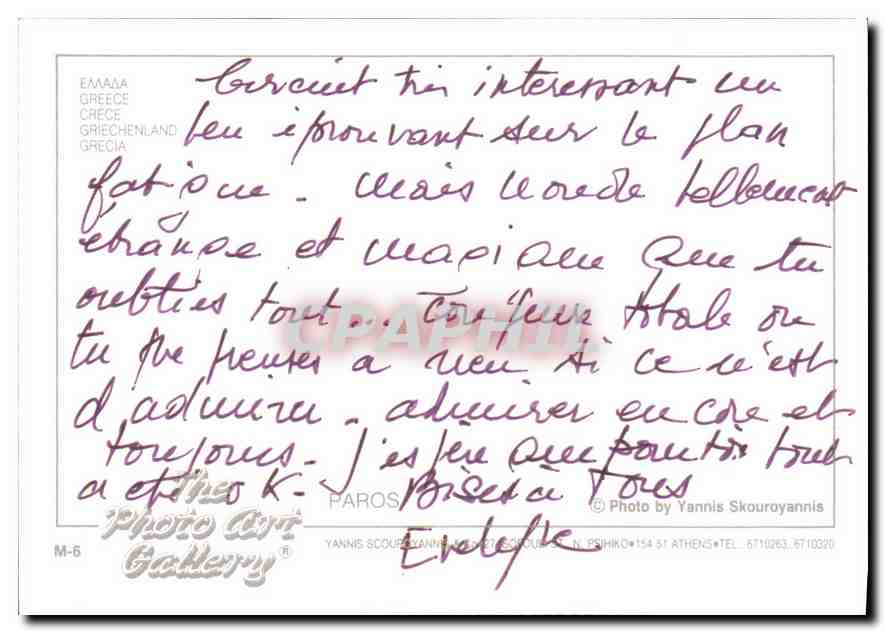 ΕΛΛΑΔΑ
GREECE
CRÈCE
GRIECHENLAND
GRECIA
Circuit très interessant un
peu éprouvant sur le plan
fatigue - Mais Monde tellement
étrange et magique que tu
oublies tout... totale où
tu ne penses a rien si ce n'est
d'admirer - admirer encore et
toujours - J'espère que pour toi tout
a été OK -
PAROS
Bises à Tous
© Photo by Yannis Skouroyannis
Evelyne
The
Photo Art
Gallery®
M-6
YANNIS SCOUROYANNIS N. PSIHIKO•154 51 ATHENS•TEL.: 6710263, 6710320
CPAPHIL